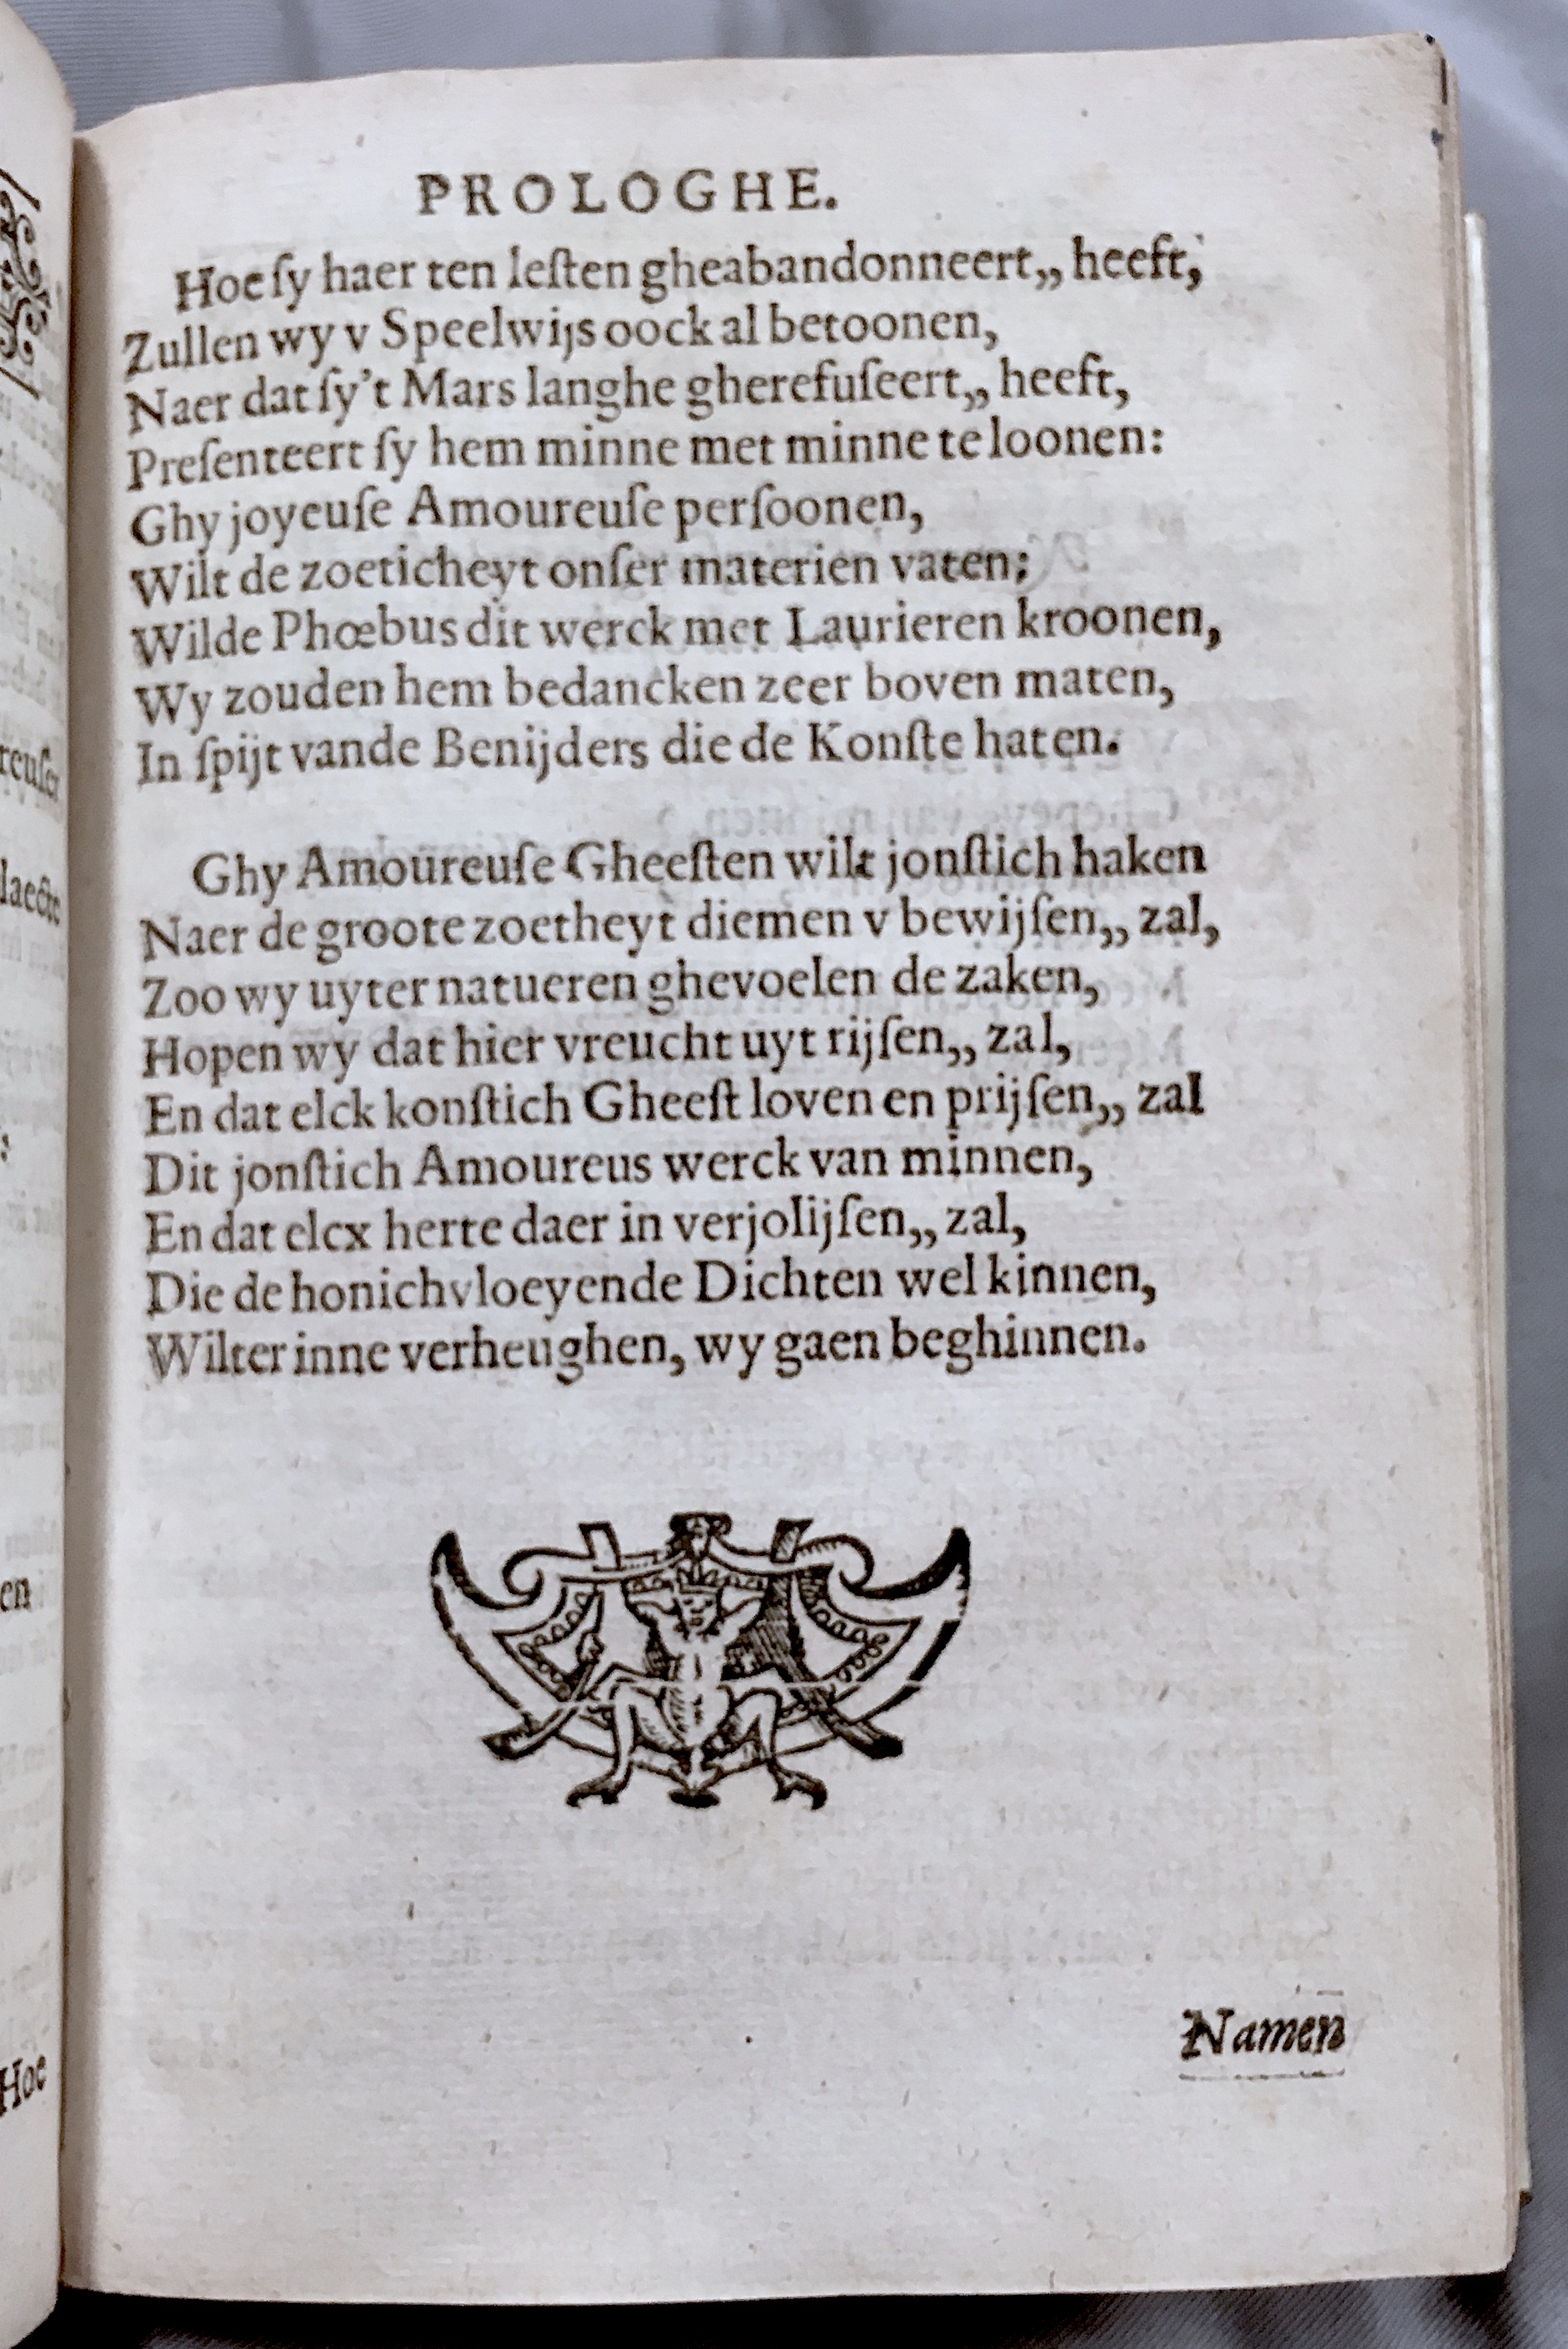 PROLOGHE.
Hoe ſy haer ten leſten gheabandonneert,, heeft,
Zullen wy v Speelwijs oock al betoonen,
Naer dat ſy't Mars langhe gherefuſeert,, heeft,
Preſenteert ſy hem minne met minne te loonen:
Ghy joyeuſe Amoureuſe perſoonen,
Wilt de zoeticheyt onſer materien vaten;
Wilde Phœbus dit werck met Laurieren kroonen,
Wy zouden hem bedancken zeer boven maten,
In ſpijt vande Benijders die de Konſte haten.
Ghy Amoureuſe Gheeſten wilt jonſtich haken
Naer de groote zoetheyt diemen v bewijſen,, zal,
Zoo wy uyter natueren ghevoelen de zaken,
Hopen wy dat hier vreucht uyt rijſen,, zal,
En dat elck konſtich Gheeſt loven en prijſen,, zal
Dit jonſtich Amoureus werck van minnen,
En dat elcx herte daer in verjolijſen,, zal,
Die de honichvloeyende Dichten wel kinnen,
Wilter inne verheughen, wy gaen beghinnen.
Namen
reuſer
laeſte
en
Hoe